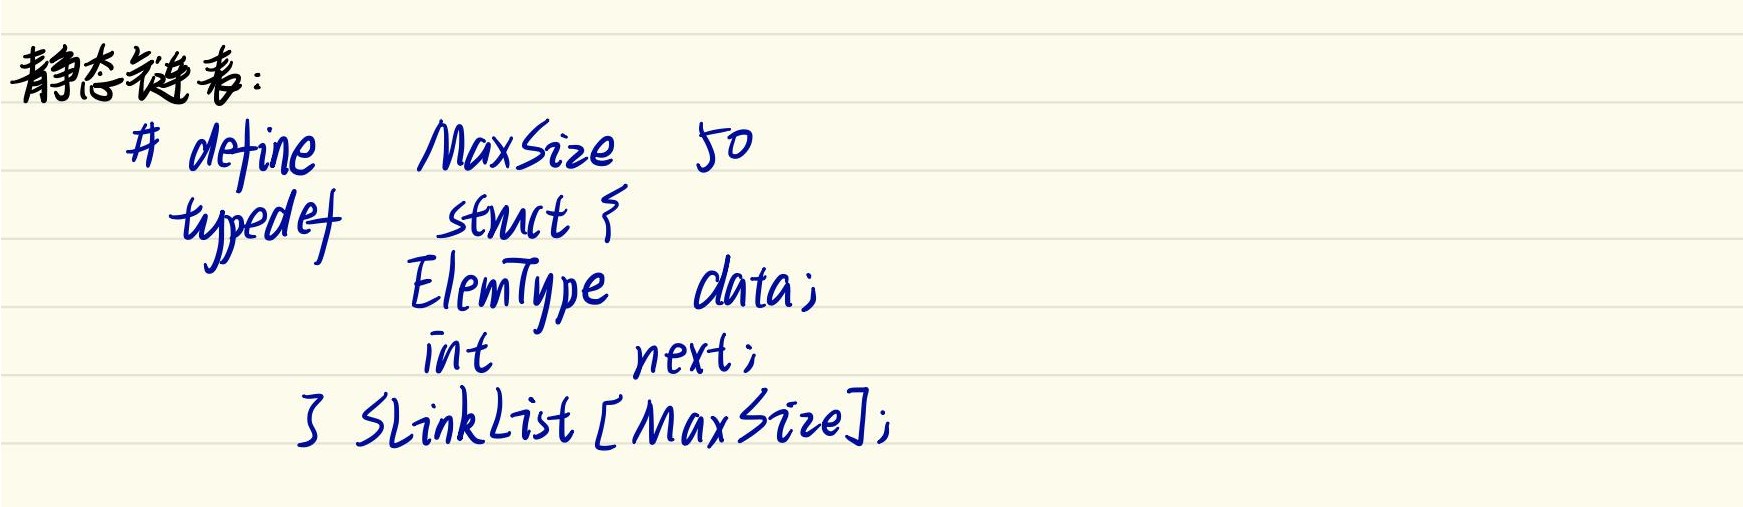 静态链表:
# define MaxSize 50
typedef struct {
ElemType data;
int next;
} SLinkList [MaxSize];